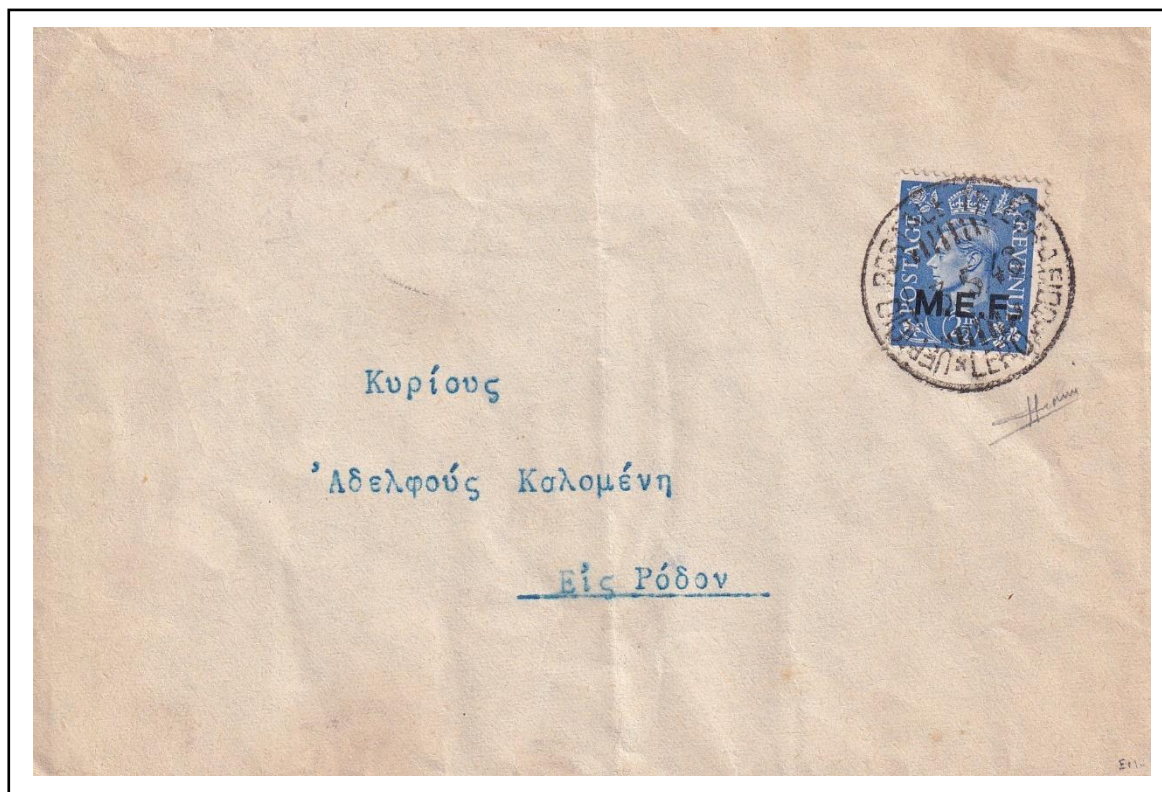 POSTAGE REVENUE
M.E.F.
Κυρίους
᾿Αδελφούς Καλομένη
Εἰς Ρόδον